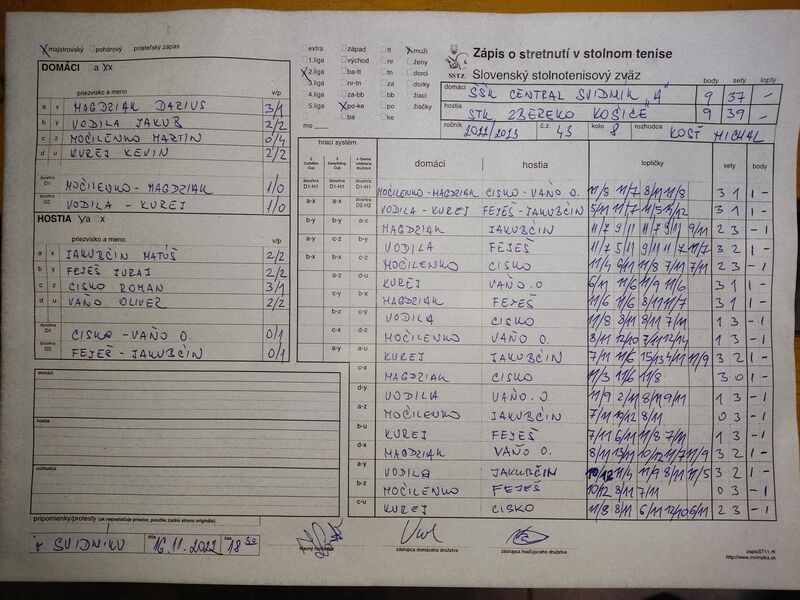 majstrovský pohárový priateľský zápas
DOMÁCI a x
priezvisko a meno v/p
a x MAGDZIAK DARIUS 3/1
b y VODILA JAKUB 2/2
c z MOČILENKO MARTIN 0/4
d u KUREJ KEVIN 2/2
štvorhra D1 MOČILENKO - MAGDZIAK 1/0
štvorhra D2 VODILA - KUREJ 1/0
HOSTIA a x
priezvisko a meno v/p
a x JAKUBČIN MATÚŠ 2/2
b y FEJEŠ JURAJ 2/2
c z CISKO ROMAN 3/1
d u VAŇO OLIVER 2/2
štvorhra D1 CISKO - VAŇO O. 0/1
štvorhra D2 FEJEŠ - JAKUBČIN 0/1
domáci
hostia
rozhodca
pripomienky/protesty (ak nepostačuje priestor, použite zadnú stranu originálu)
v SVIDNÍKU dňa 16.11.2022 čas 18 30
hlavný rozhodca
zástupca domáceho družstva
zástupca hosťujúceho družstva
extra západ tt muži
1.liga východ nr ženy
2.liga ba-tt tn dorci
3.liga nr-tn za dorky
4.liga za-bb bb žiaci
5.liga po-ke po žiačky
mo ba ke
SSTZ
Zápis o stretnutí v stolnom tenise
Slovenský stolnotenisový zväz
body sety lopty
domáci ŠŠK CENTRAL SVIDNÍK "A" 9 37 -
hostia STK ZBEREKO KOŠICE 9 39 -
ročník 2022/2023 č.z. 43 kolo 8 rozhodca KOSŤ MICHAL
hrací systém domáci hostia loptičky sety body
štvorhra D1-H1 štvorhra D1-H1 štvorhra D1-H1 MOČILENKO - MAGDZIAK CISKO - VAŇO O. 11/8 11/7 8/11 11/8 3 1 1 -
a-x a-x štvorhra D2-H2 VODILA - KUREJ FEJEŠ - JAKUBČIN 5/11 11/7 11/5 3 1 1 -
b-y b-y a-x MAGDZIAK JAKUBČIN 11/7 9/11 11/7 9/11 9/11 2 3 - 1
a-y c-z b-y VODILA FEJEŠ 11/7 5/11 9/11 11/7 11/7 3 2 1 -
b-x b-x c-z MOČILENKO CISKO 11/4 11/8 7/11 7/11 2 3 - 1
a-z d-u KUREJ VAŇO O. 6/11 11/6 11/9 11/6 3 1 1 -
c-y b-x MAGDZIAK FEJEŠ 11/6 11/6 8/11 11/7 3 1 1 -
b-z c-y VODILA CISKO 11/8 8/11 8/11 7/11 1 3 - 1
c-x d-z MOČILENKO VAŇO O. 8/11 12/10 7/11 12/14 1 3 - 1
a-y a-u KUREJ JAKUBČIN 7/11 11/6 15/13 4/11 11/9 3 2 1 -
c-x MAGDZIAK CISKO 11/3 11/6 11/8 3 0 1 -
d-y VODILA VAŇO. O 11/9 2/11 8/11 9/11 1 3 - 1
a-z MOČILENKO JAKUBČIN 7/11 10/12 8/11 0 3 - 1
b-u KUREJ FEJEŠ 7/11 6/11 11/8 7/11 1 3 - 1
d-x MAGDZIAK VAŇO O. 8/11 10/12 11/7 11/9 3 2 1 -
a-y VODILA JAKUBČIN 10/12 11/4 11/9 8/11 11/5 3 2 1 -
b-z MOČILENKO FEJEŠ 10/12 8/11 7/11 0 3 - 1
c-u KUREJ CISKO 11/8 8/11 11/6 6/11 2 3 - 1
zapisST11.rtf
http://www.michalka.sk